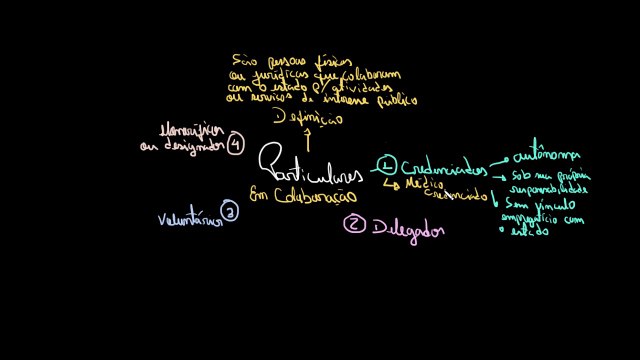 São pessoas físicas
ou jurídicas que colaboram
com o estado p/ atividades
ou serviços de interesse público
Definição
Honoríficos
ou designados 4
Particulares
Em Colaboração
1 Credenciados
Médico
Credenciado
autônoma
Sob sua própria
responsabilidade
Sem vínculo
empregatício com
o estado
Voluntários 3
2 Delegados